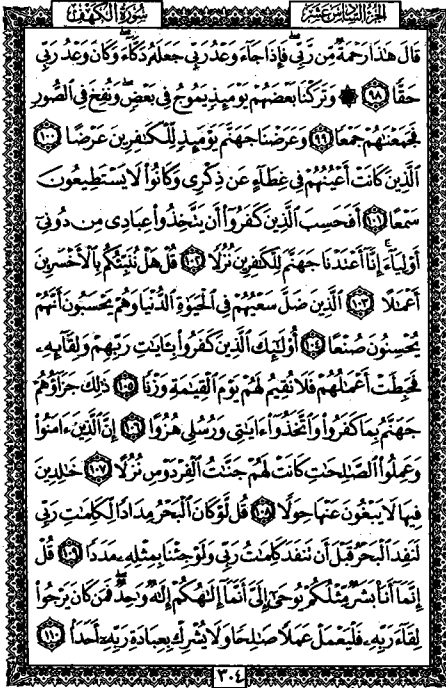 الجزء السادس عشر
سورة الكهف
قَالَ هَٰذَا رَحْمَةٌ مِّن رَّبِّي فَإِذَا جَآءَ وَعْدُ رَبِّي جَعَلَهُۥ دَكَّآءَ وَكَانَ وَعْدُ رَبِّي
حَقًّا ٩٨ ۞ وَتَرَكْنَا بَعْضَهُمْ يَوْمَئِذٍ يَمُوجُ فِي بَعْضٍ وَنُفِخَ فِي ٱلصُّورِ
فَجَمَعْنَٰهُمْ جَمْعًا ٩٩ وَعَرَضْنَا جَهَنَّمَ يَوْمَئِذٍ لِّلْكَٰفِرِينَ عَرْضًا ١٠٠
ٱلَّذِينَ كَانَتْ أَعْيُنُهُمْ فِي غِطَآءٍ عَن ذِكْرِي وَكَانُوا۟ لَا يَسْتَطِيعُونَ
سَمْعًا ١٠١ أَفَحَسِبَ ٱلَّذِينَ كَفَرُوٓا۟ أَن يَتَّخِذُوا۟ عِبَادِي مِن دُونِيٓ
أَوْلِيَآءَ إِنَّآ أَعْتَدْنَا جَهَنَّمَ لِلْكَٰفِرِينَ نُزُلًا ١٠٢ قُلْ هَلْ نُنَبِّئُكُم بِٱلْأَخْسَرِينَ
أَعْمَٰلًا ١٠٣ ٱلَّذِينَ ضَلَّ سَعْيُهُمْ فِي ٱلْحَيَوٰةِ ٱلدُّنْيَا وَهُمْ يَحْسَبُونَ أَنَّهُمْ
يُحْسِنُونَ صُنْعًا ١٠٤ أُو۟لَٰٓئِكَ ٱلَّذِينَ كَفَرُوا۟ بِـَٔايَٰتِ رَبِّهِمْ وَلِقَآئِهِۦ
فَحَبِطَتْ أَعْمَٰلُهُمْ فَلَا نُقِيمُ لَهُمْ يَوْمَ ٱلْقِيَٰمَةِ وَزْنًا ١٠٥ ذَٰلِكَ جَزَآؤُهُمْ
جَهَنَّمُ بِمَا كَفَرُوا۟ وَٱتَّخَذُوٓا۟ ءَايَٰتِي وَرُسُلِي هُزُوًا ١٠٦ إِنَّ ٱلَّذِينَ ءَامَنُوا۟
وَعَمِلُوا۟ ٱلصَّٰلِحَٰتِ كَانَتْ لَهُمْ جَنَّٰتُ ٱلْفِرْدَوْسِ نُزُلًا ١٠٧ خَٰلِدِينَ
فِيهَا لَا يَبْغُونَ عَنْهَا حِوَلًا ١٠٨ قُل لَّوْ كَانَ ٱلْبَحْرُ مِدَادًا لِّكَلِمَٰتِ رَبِّي
لَنَفِدَ ٱلْبَحْرُ قَبْلَ أَن تَنفَدَ كَلِمَٰتُ رَبِّي وَلَوْ جِئْنَا بِمِثْلِهِۦ مَدَدًا ١٠٩ قُلْ
إِنَّمَآ أَنَا۠ بَشَرٌ مِّثْلُكُمْ يُوحَىٰٓ إِلَيَّ أَنَّمَآ إِلَٰهُكُمْ إِلَٰهٌ وَٰحِدٌ فَمَن كَانَ يَرْجُوا۟
لِقَآءَ رَبِّهِۦ فَلْيَعْمَلْ عَمَلًا صَٰلِحًا وَلَا يُشْرِكْ بِعِبَادَةِ رَبِّهِۦٓ أَحَدًا ١١٠
٣٠٤